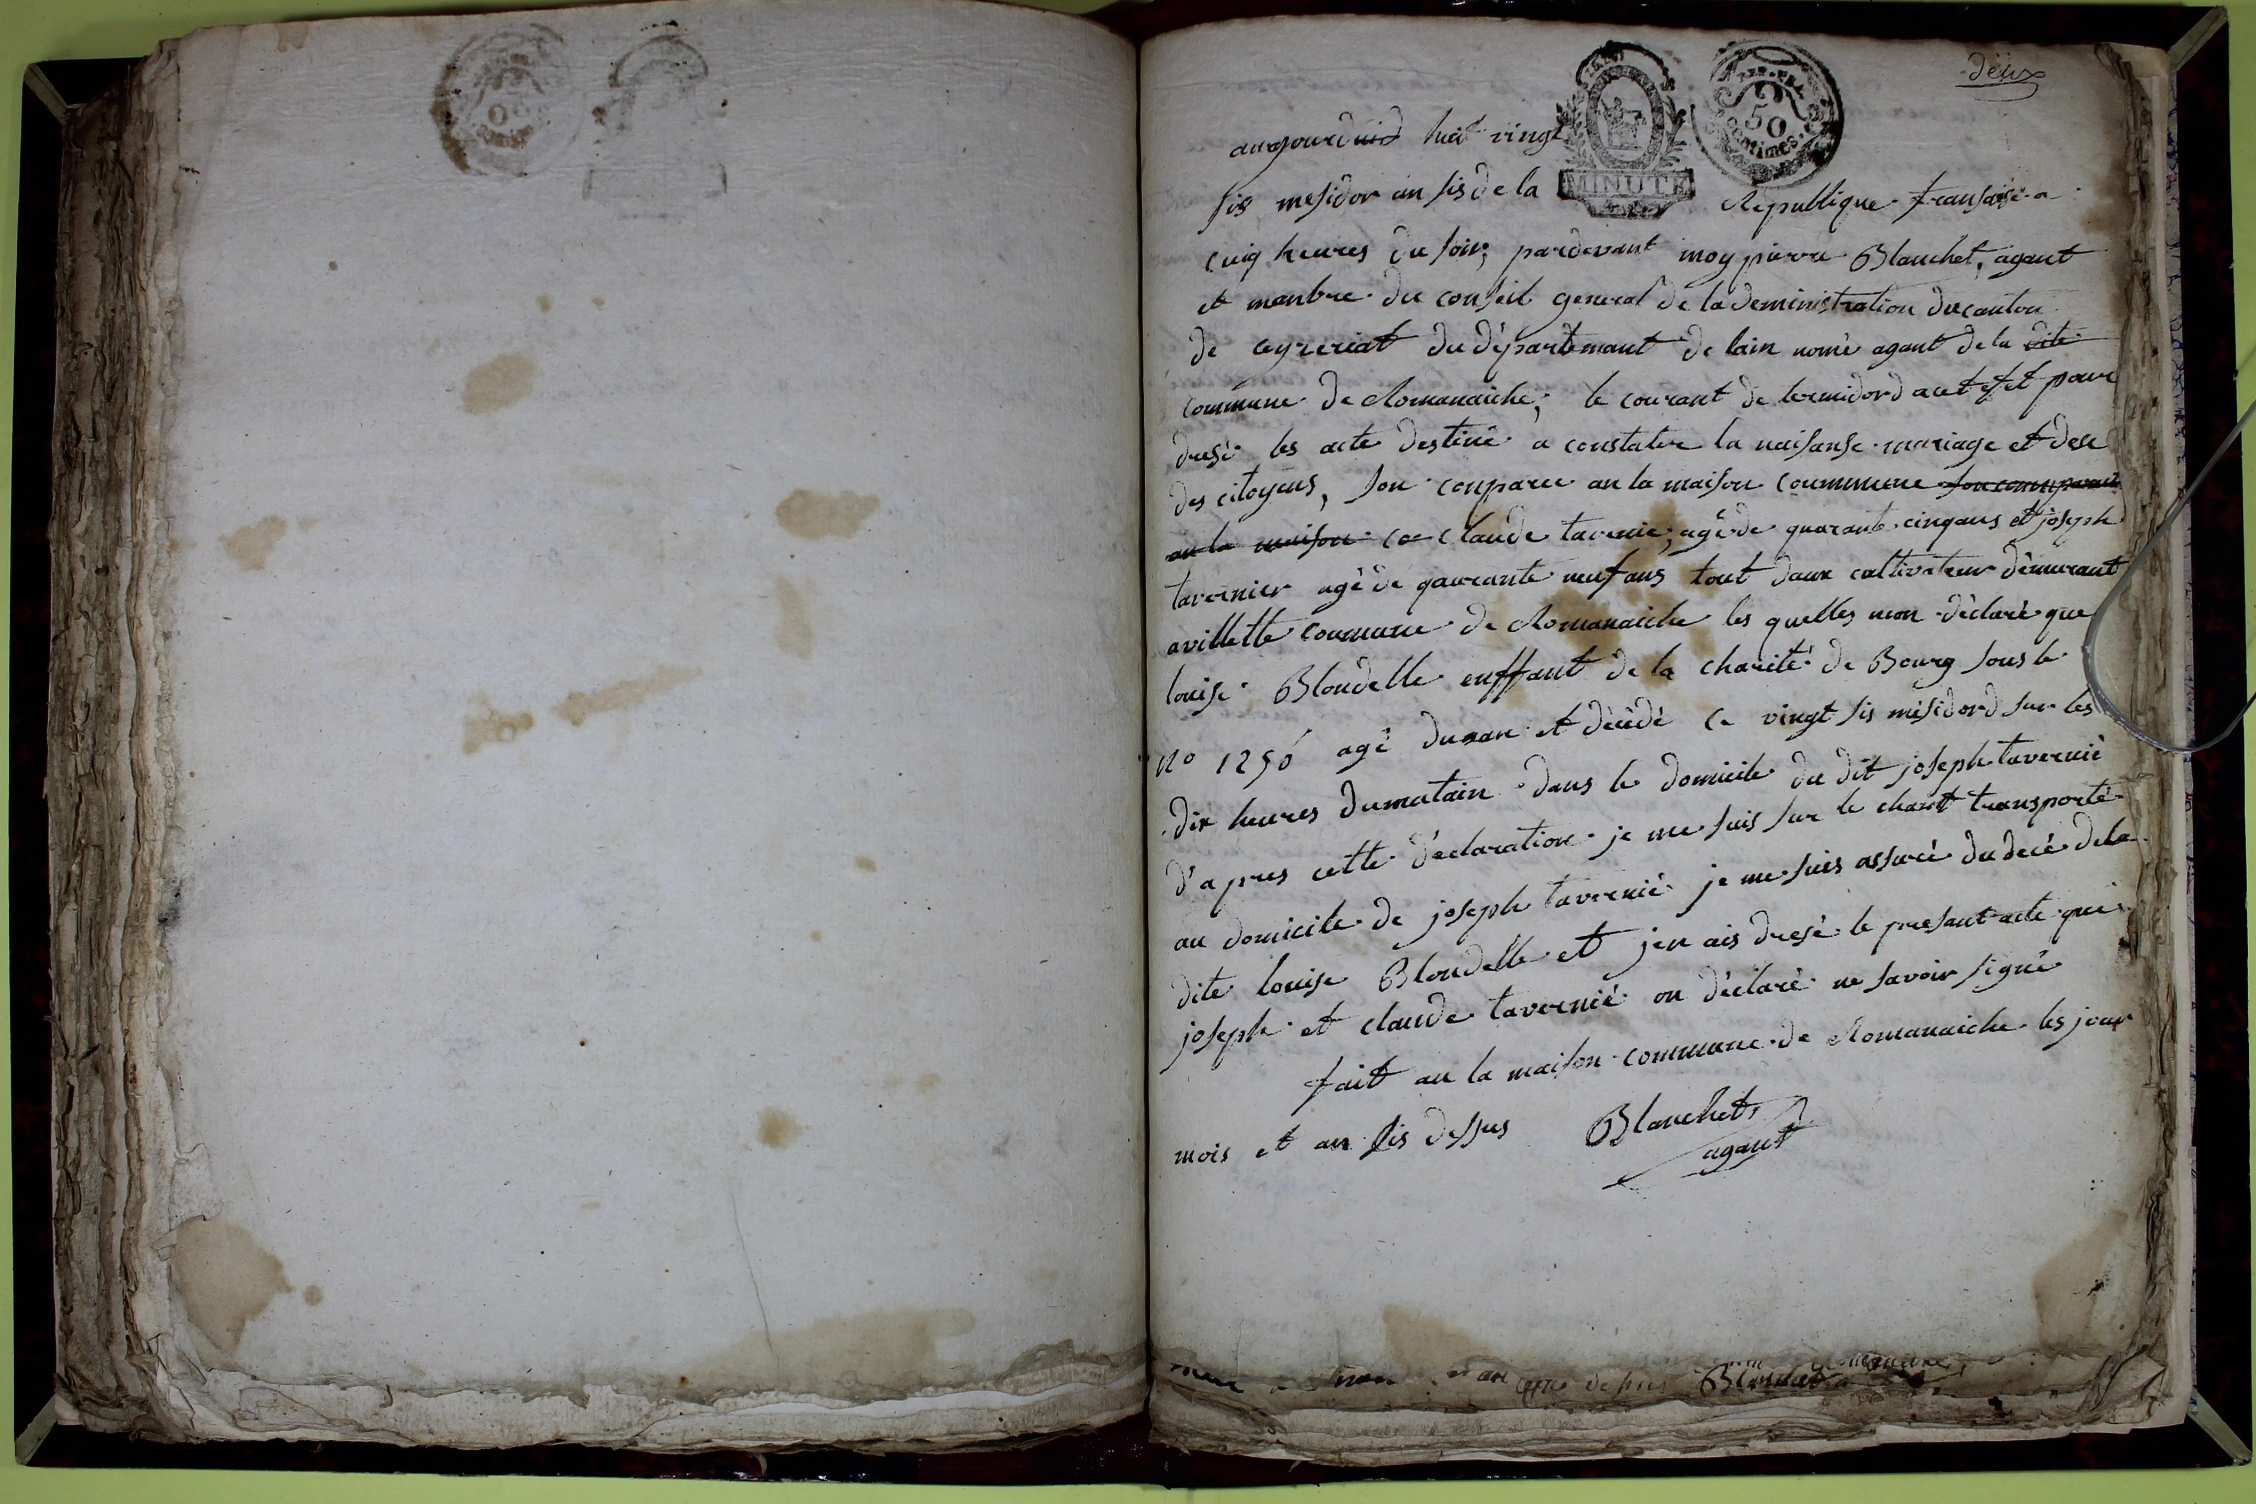 deux
MINUTE
REP. FRA.
50
centimes.
aujourduid huit vingt
sis mesidor an sis de la Republique fransaise a
cuiq heures du soir, pardevant moy pierre Blanchet, agant
et manbre du conseil general de la deministration du canton
de ceyzeriat du départemant de lain nomé agant de la dite
commune de Romanaiche, le courant de termidord acet efet pour
dresé les acte destiné a constater la naisanse mariage et dese
des citoyens, son conparu an la maison coummune son comparu
an la maison ce claude tavernie, agé de quarante cinq ans et joseph
tavernier agé de qaurante neuf ans tout daux caltivateur démurant
avillette commune de Romanaiche les quelles mon déclaré que
louise Blondelle enffant de la charité de Bourg sous le
No 1256 agé dunan et décédé ce vingt sis mésidord sur les
dix heures dumatain dans le domicile du dit joseph tavernié
d'apres cette déclaration je me suis sur le chant transporté
au domicile de joseph tavernié je me suis assuré du decé dela
dite louise Blondelle et jen ais dresé le presant acte que
joseph et claude tavernié on déclaré ne savoir signé
fait an la maison commune de Romanaiche les jour
mois et an sis dessus Blanchet,
agant